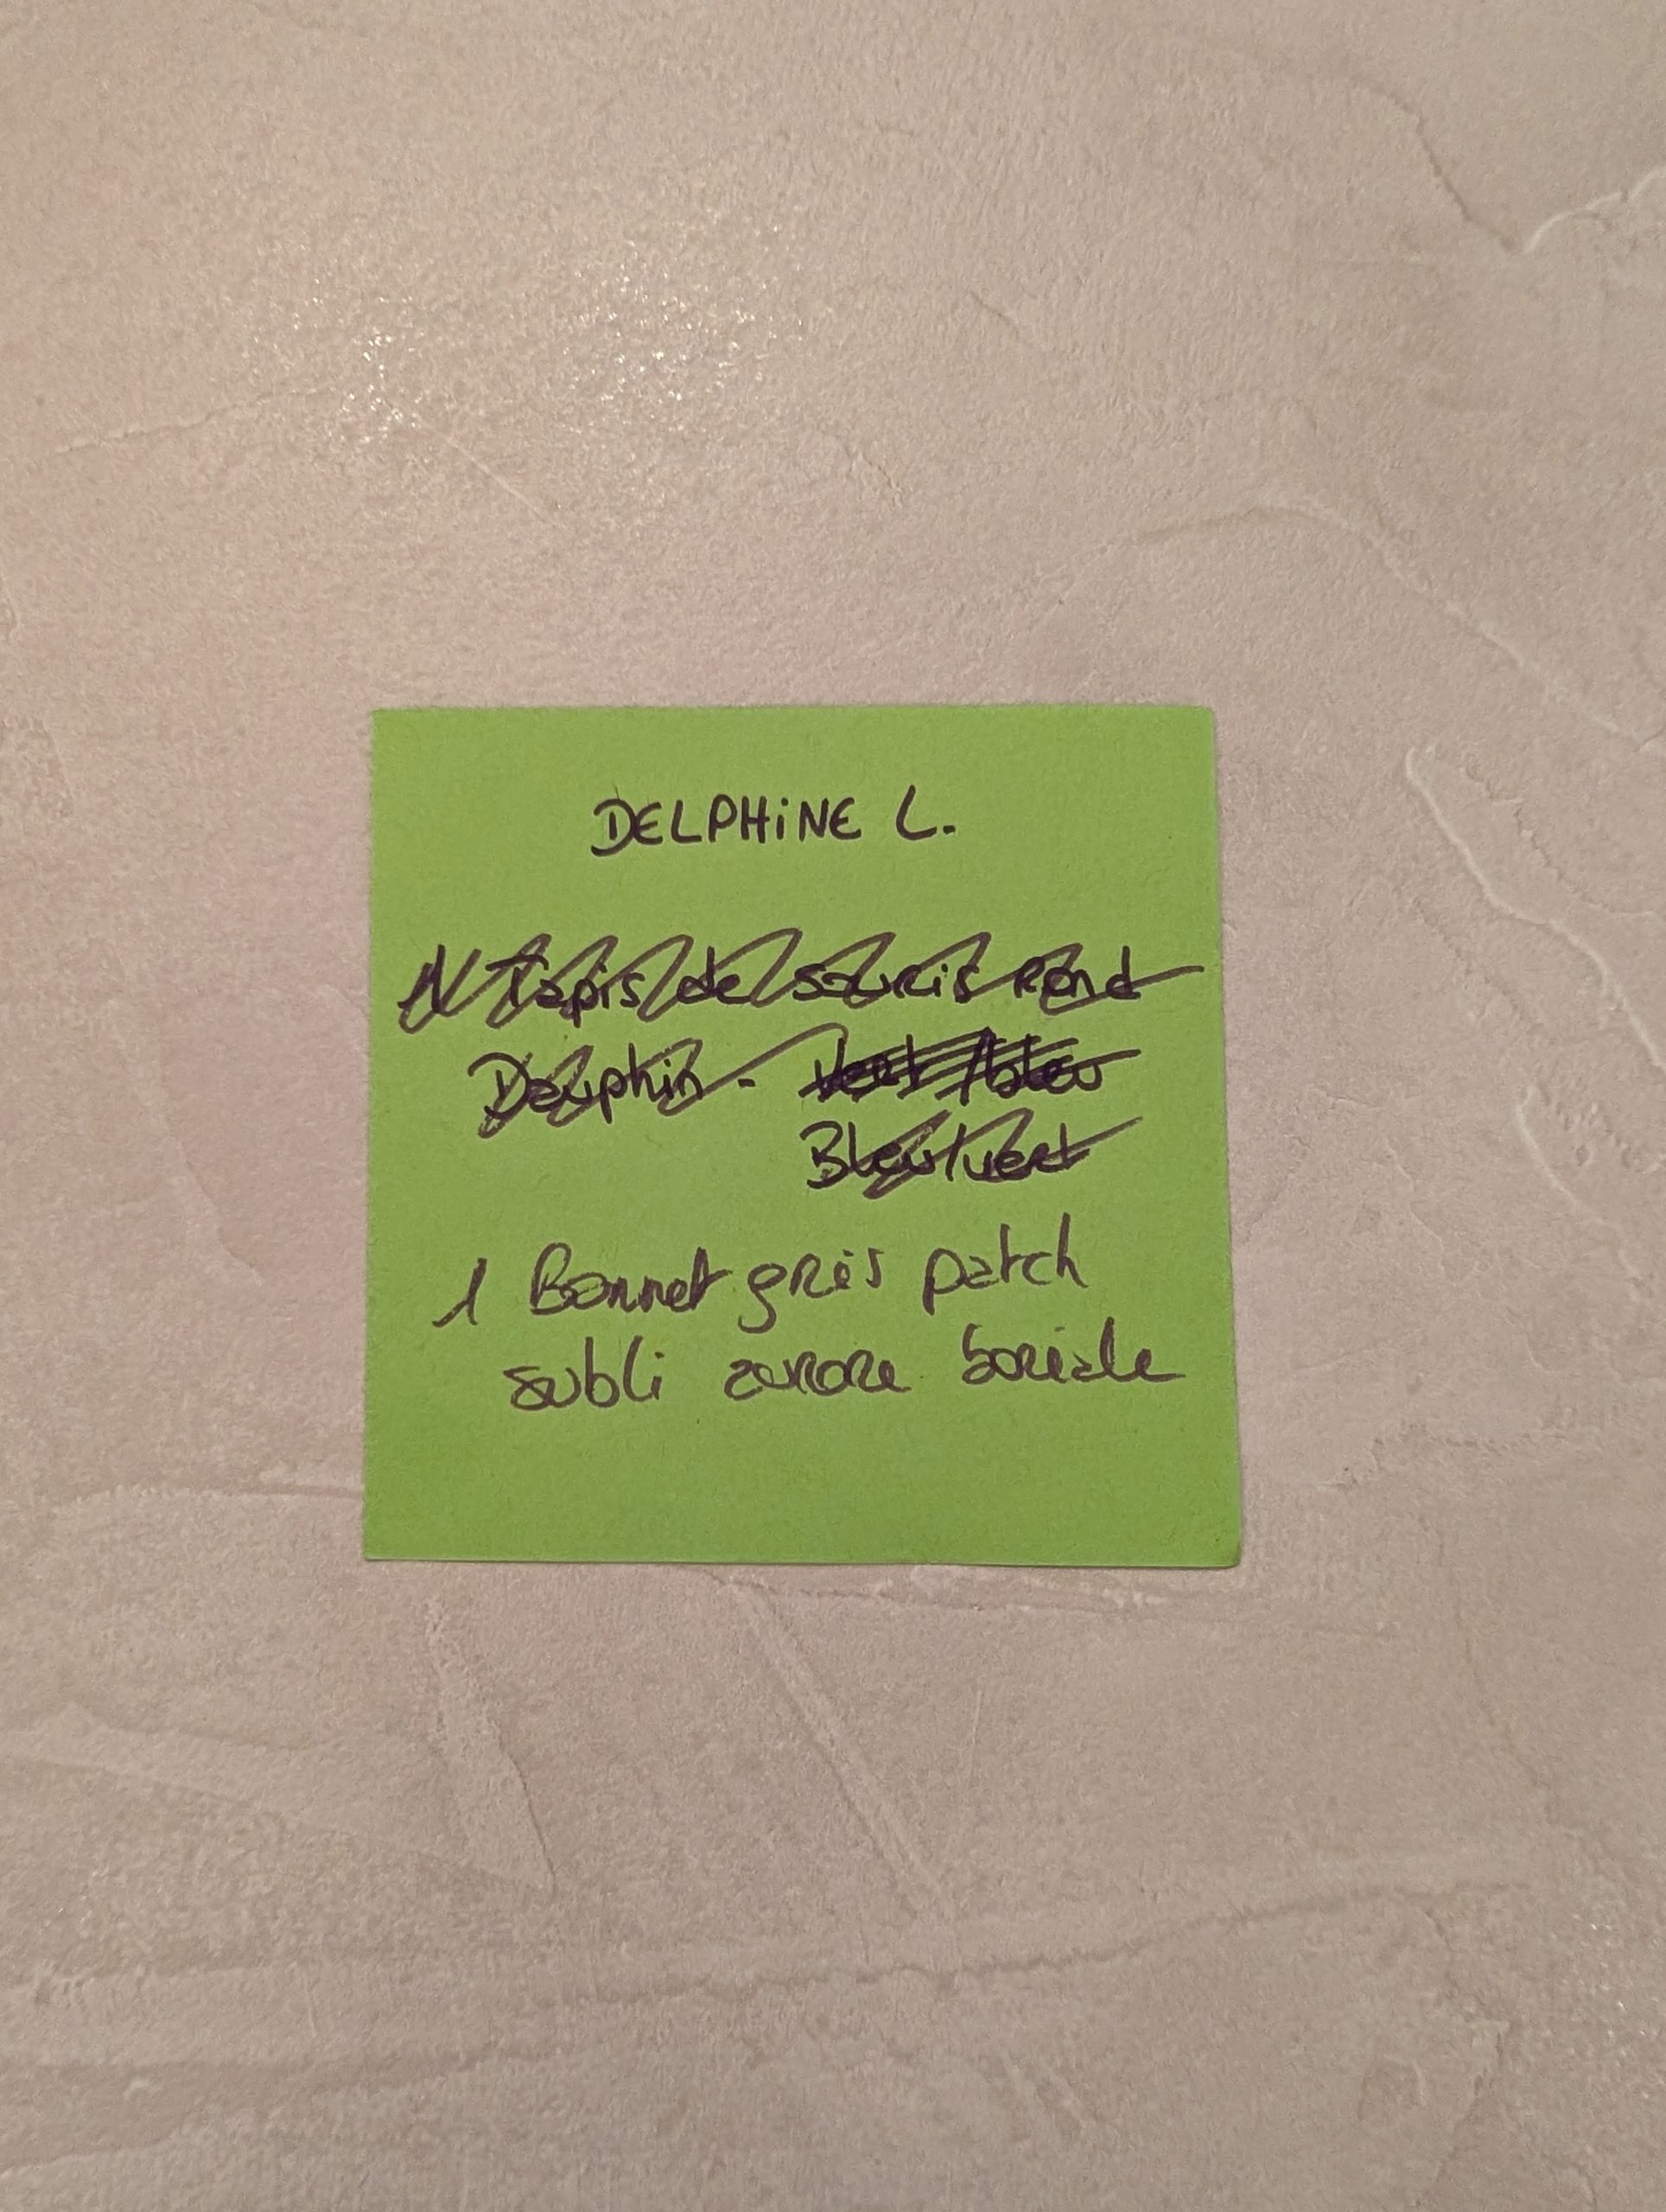 DELPHiNE L.
1 Tapis de souris rond
Dauphin - Vert/bleu
Bleu/vert
1 Bonnet gris patch
subli aurore boréale